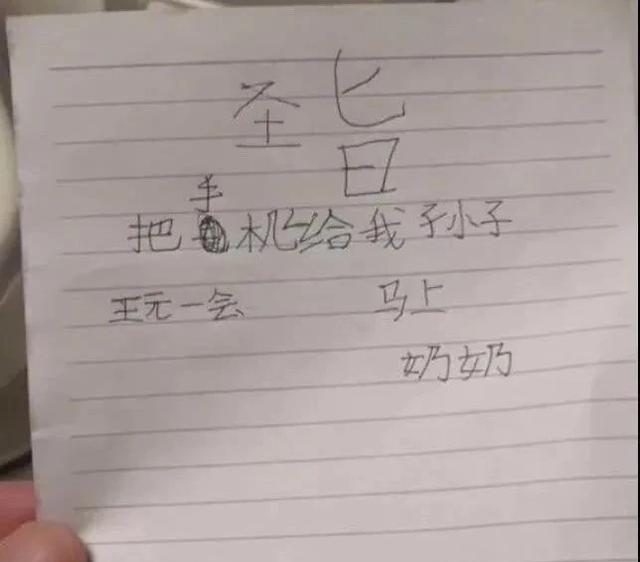 圣旨
把手机给我孙小子
王元一会 马上
奶奶